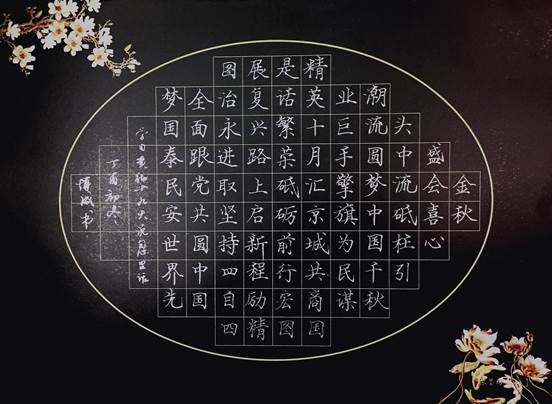 金秋
盛会喜心
头中流砥柱引
潮流圆梦中国千秋
业巨手擎旗为民谋
精英十月汇京城共商国
是话繁荣砥砺前行宏图
展复兴路上启新程励精
图治永进取坚持四自四
全面跟党共圆中国
梦国泰民安世界先
学习十九大
丁酉初冬
书